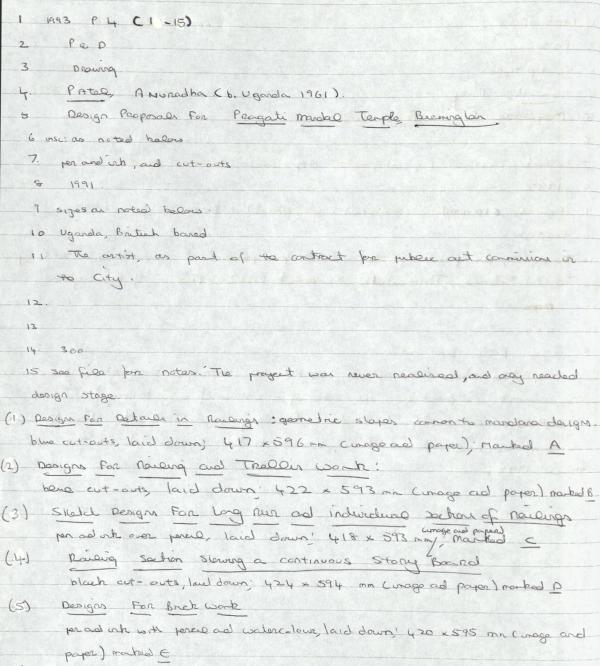 1 1993 P 4 (1-15)
2 P & D
3 Drawing
4. Patel, Anuradha (b. Uganda 1961).
5 Design Proposals For Pragati Mandal Temple, Birmingham
6 insc: as noted below
7. pen and ink, and cut-outs
8 1991
9 sizes as noted below.
10 Uganda, British based
11 The artist, as part of the contract for public art commission in
the City.
12.
13
14 300
15 see file for notes. The project was never realised, and only reached
design stage
(1) Designs For Details in Railings: geometric shapes common to mandara designs.
blue cut-outs, laid down; 417 x 596 mm (image and paper); marked A
(2) Designs For Railing and Trellis work:
blue cut-outs, laid down; 422 x 593 mm (image and paper) marked B
(3) Sketch Designs For Long run and individual sections of railings
pen and ink over pencil, laid down; 418 x 593 mm (image and paper), marked C
(4) Railing section showing a continuous Story Board
black cut-outs, laid down; 424 x 594 mm (image and paper) marked D
(5) Designs For Brick work
pen and ink with pencil and watercolour, laid down; 420 x 595 mm (image and
paper) marked E